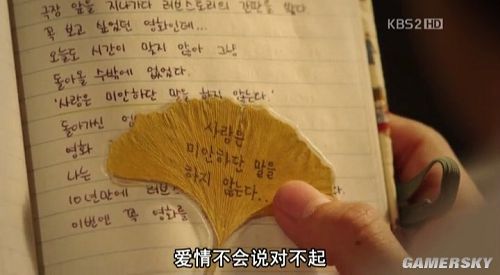 KBS2 HD
극장 앞을 지나가다 러브스토리의 간판을 봤다
꼭 보고 싶었던 영화인데...
오늘도 시간이 맞지 않아 그냥
돌아올 수밖에 없었다.
'사랑은 미안하단 말을 하지 않는다.'
돌아가신
영화
나는
10년만에 러브스
이번엔 꼭 영화를
사랑은
미안하단 말을
하지 않는다..
爱情不会说对不起
GAMERSKY